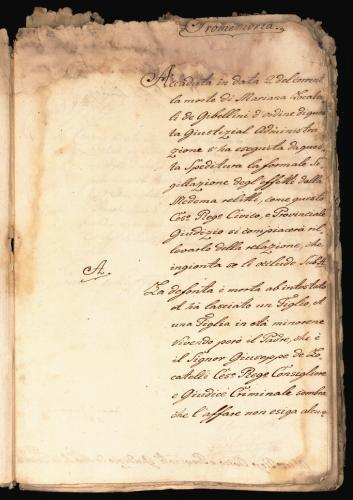 Promemoria.
Accaduta in data 2 del corrent.
la morte di Mariana Locatel
li de Gibellini d'ordine di ques
ta Giustizial Administra
zione si ha eseguita da ques
ta Speditura la formale Si
gillazione degl'effetti dalla
Medema relitti, come questo
Ces.º Reg.º Civico, e Provinciale
Giudizio si compiacerà ril
levarlo della relazione, che
ingionta se li acclude Sub. A.
A.
La defonta è morta ab intestato
ed ha lasciato un Figlio, et
una Figlia in età minorene
vivendo però il Padre, che è
il Signor Giuseppe de Lo
catelli Ces.º Reg.º Consigliere
e Giudice Criminale sembra
che l'affare non esiga alcu=